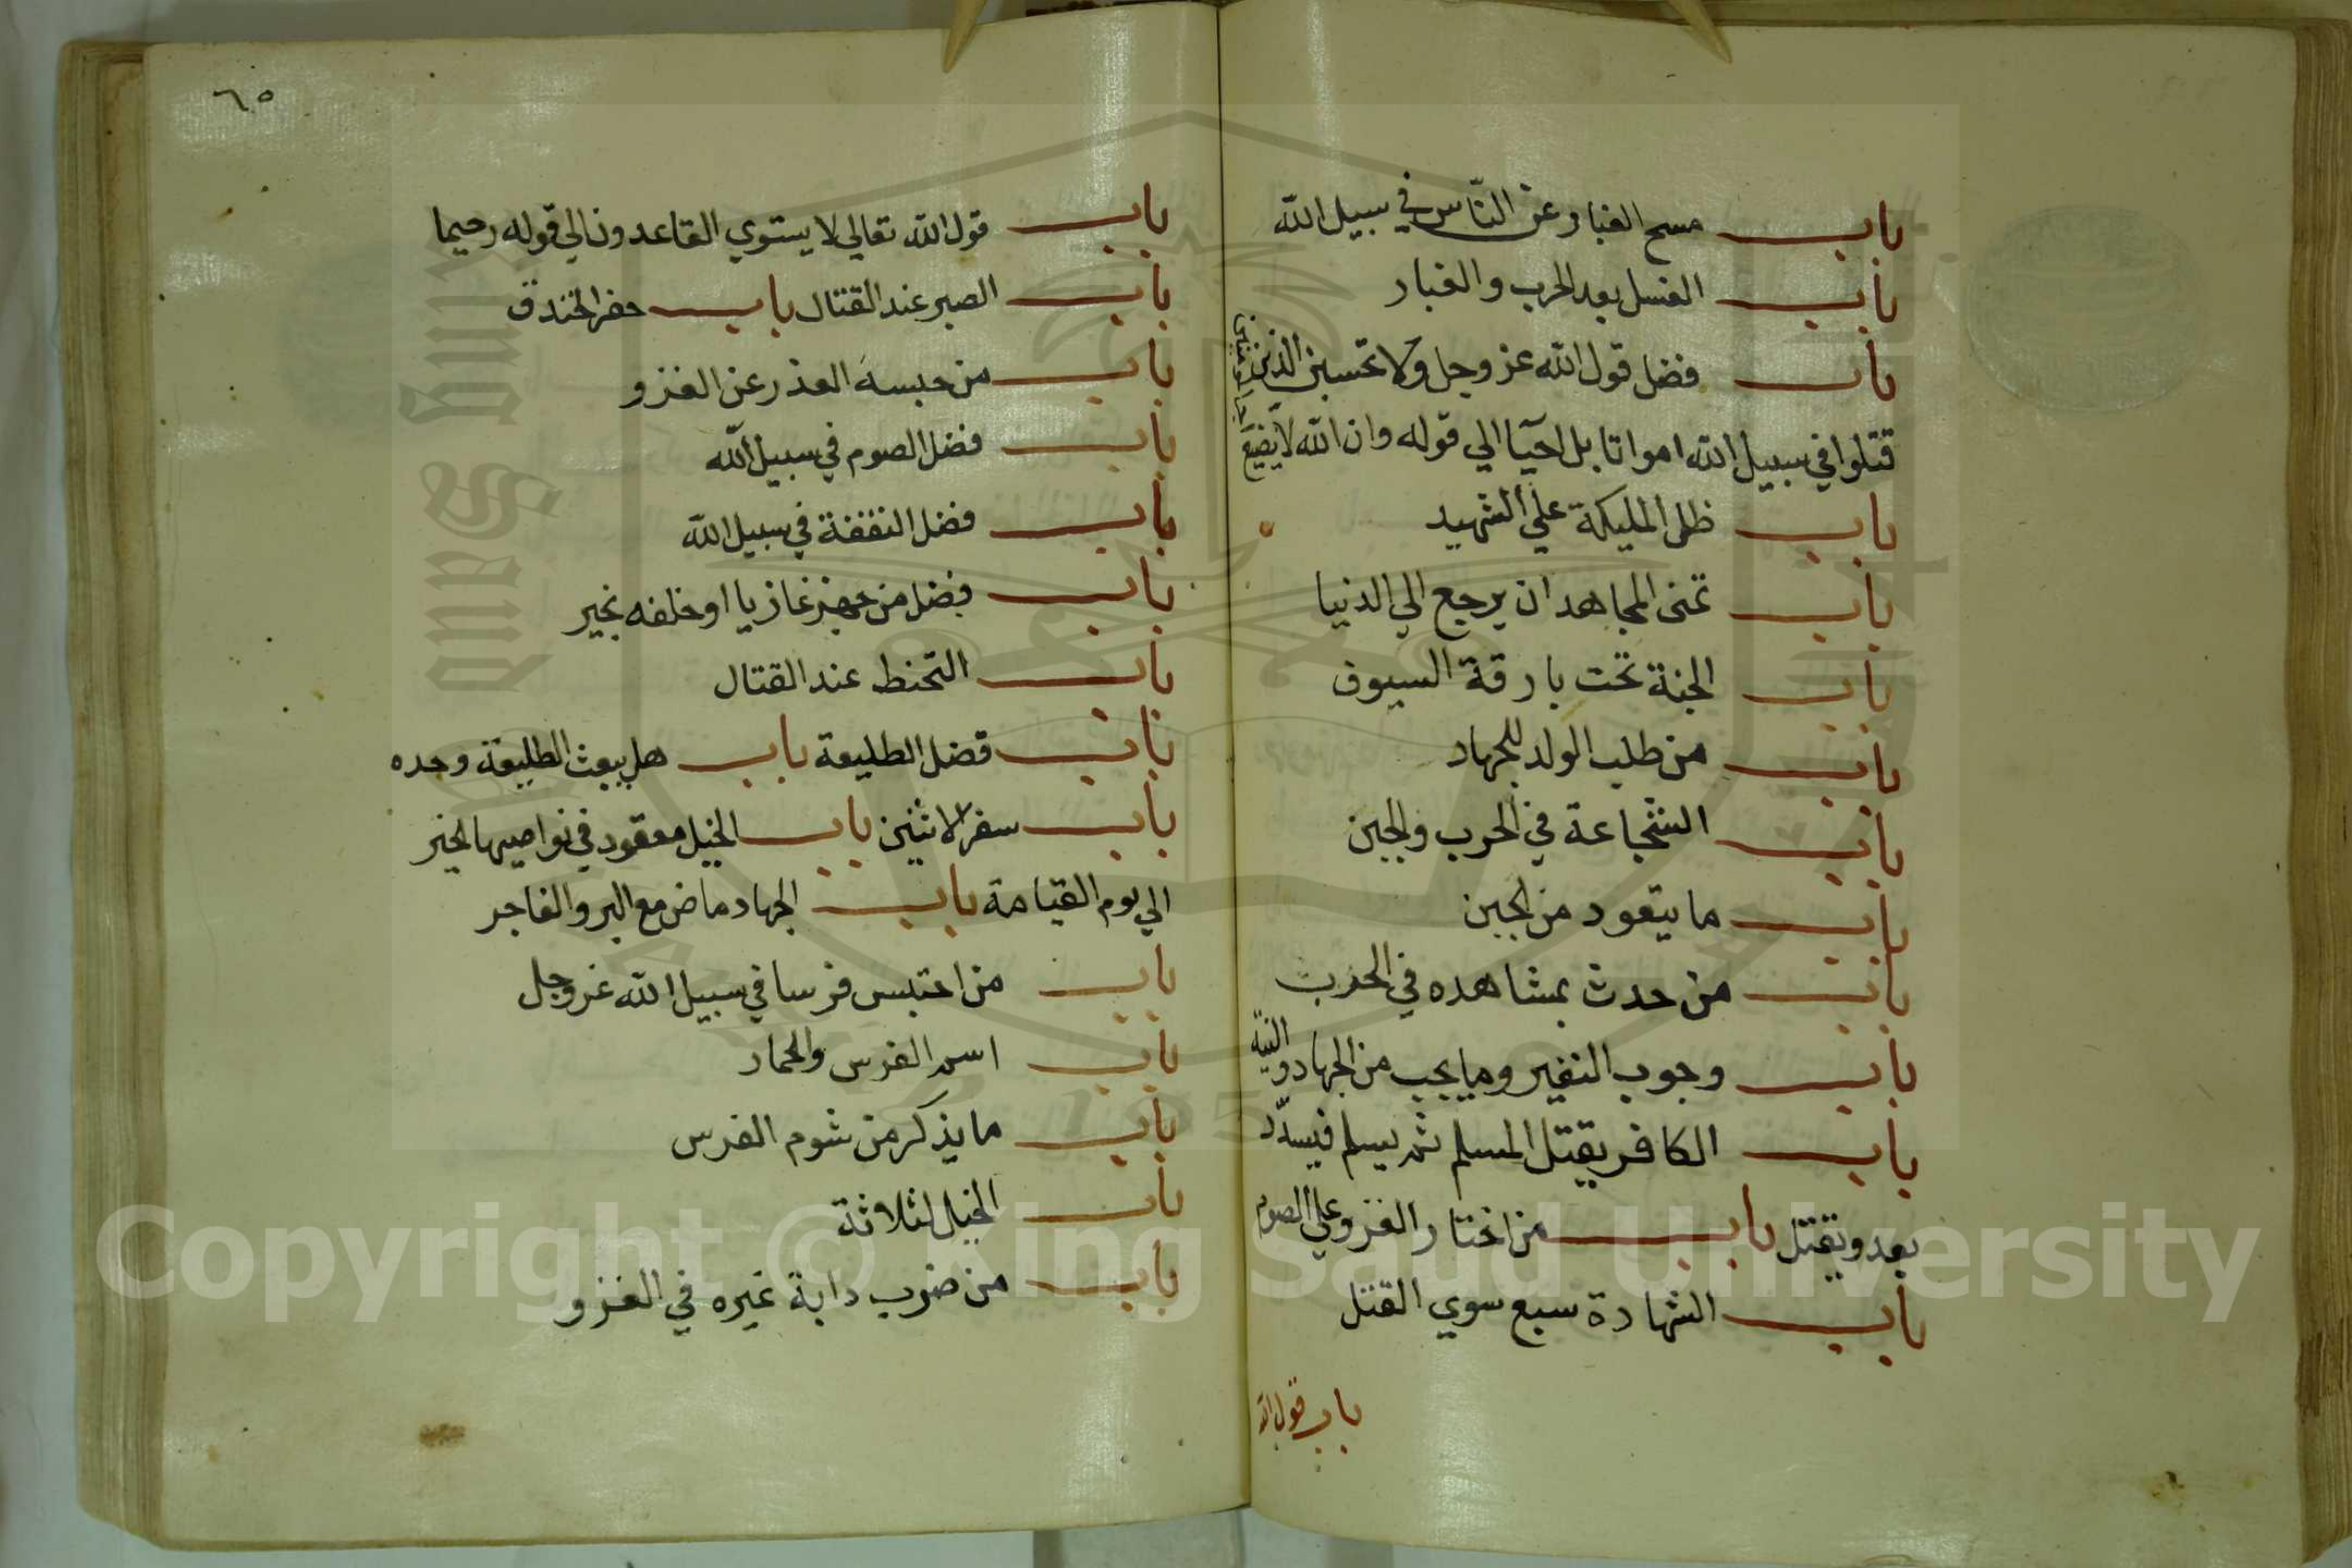 باب مسح الغبار عن النّاس في سبيل الله
باب الغسل بعد الحرب والغبار
باب فضل قول الله عز وجل ولا تحسبن الذين
قتلوا في سبيل الله امواتا بل احيآ الي قوله وان الله لا يضيع
باب ظل المليكة علي الشهيد
باب تمنى المجاهد ان يرجع الي الدنيا
باب الجنة تحت بارقة السيوف
باب من طلب الولد للجهاد
باب الشجاعة في الحرب والجبن
باب ما يتعود من الجبن
باب من حدث بمشاهده في الحرب
باب وجوب النفير وما يجب من الجهاد والنية
باب الكافر يقتل المسلم ثم يسلم فيسدّد
بعد ويقتل باب من اختار الغزو علي الصوم
باب الشهادة سبع سوي القتل
باب قول الله
٦٥
باب قول الله تعالي لا يستوي القاعدون الي قوله رحيما
باب الصبر عند القتال باب حفر الخندق
باب من حبسه العذر عن الغزو
باب فضل الصوم في سبيل الله
باب فضل النفقة في سبيل الله
باب فضل من جهز غازيا او خلفه بخير
باب التحنط عند القتال
باب فضل الطليعة باب هل يبعث الطليعة وحده
باب سفر الاثنين باب الخيل معقود في نواصيها الخير
الي يوم القيامة باب الجهاد ماض مع البر والفاجر
باب من احتبس فرسا في سبيل الله عز وجل
باب اسم الفرس والحمار
باب ما يذكر من شوم الفرس
باب الخيل لثلاثة
باب من ضرب دابة غيره في الغزو
Copyright © King Saud University